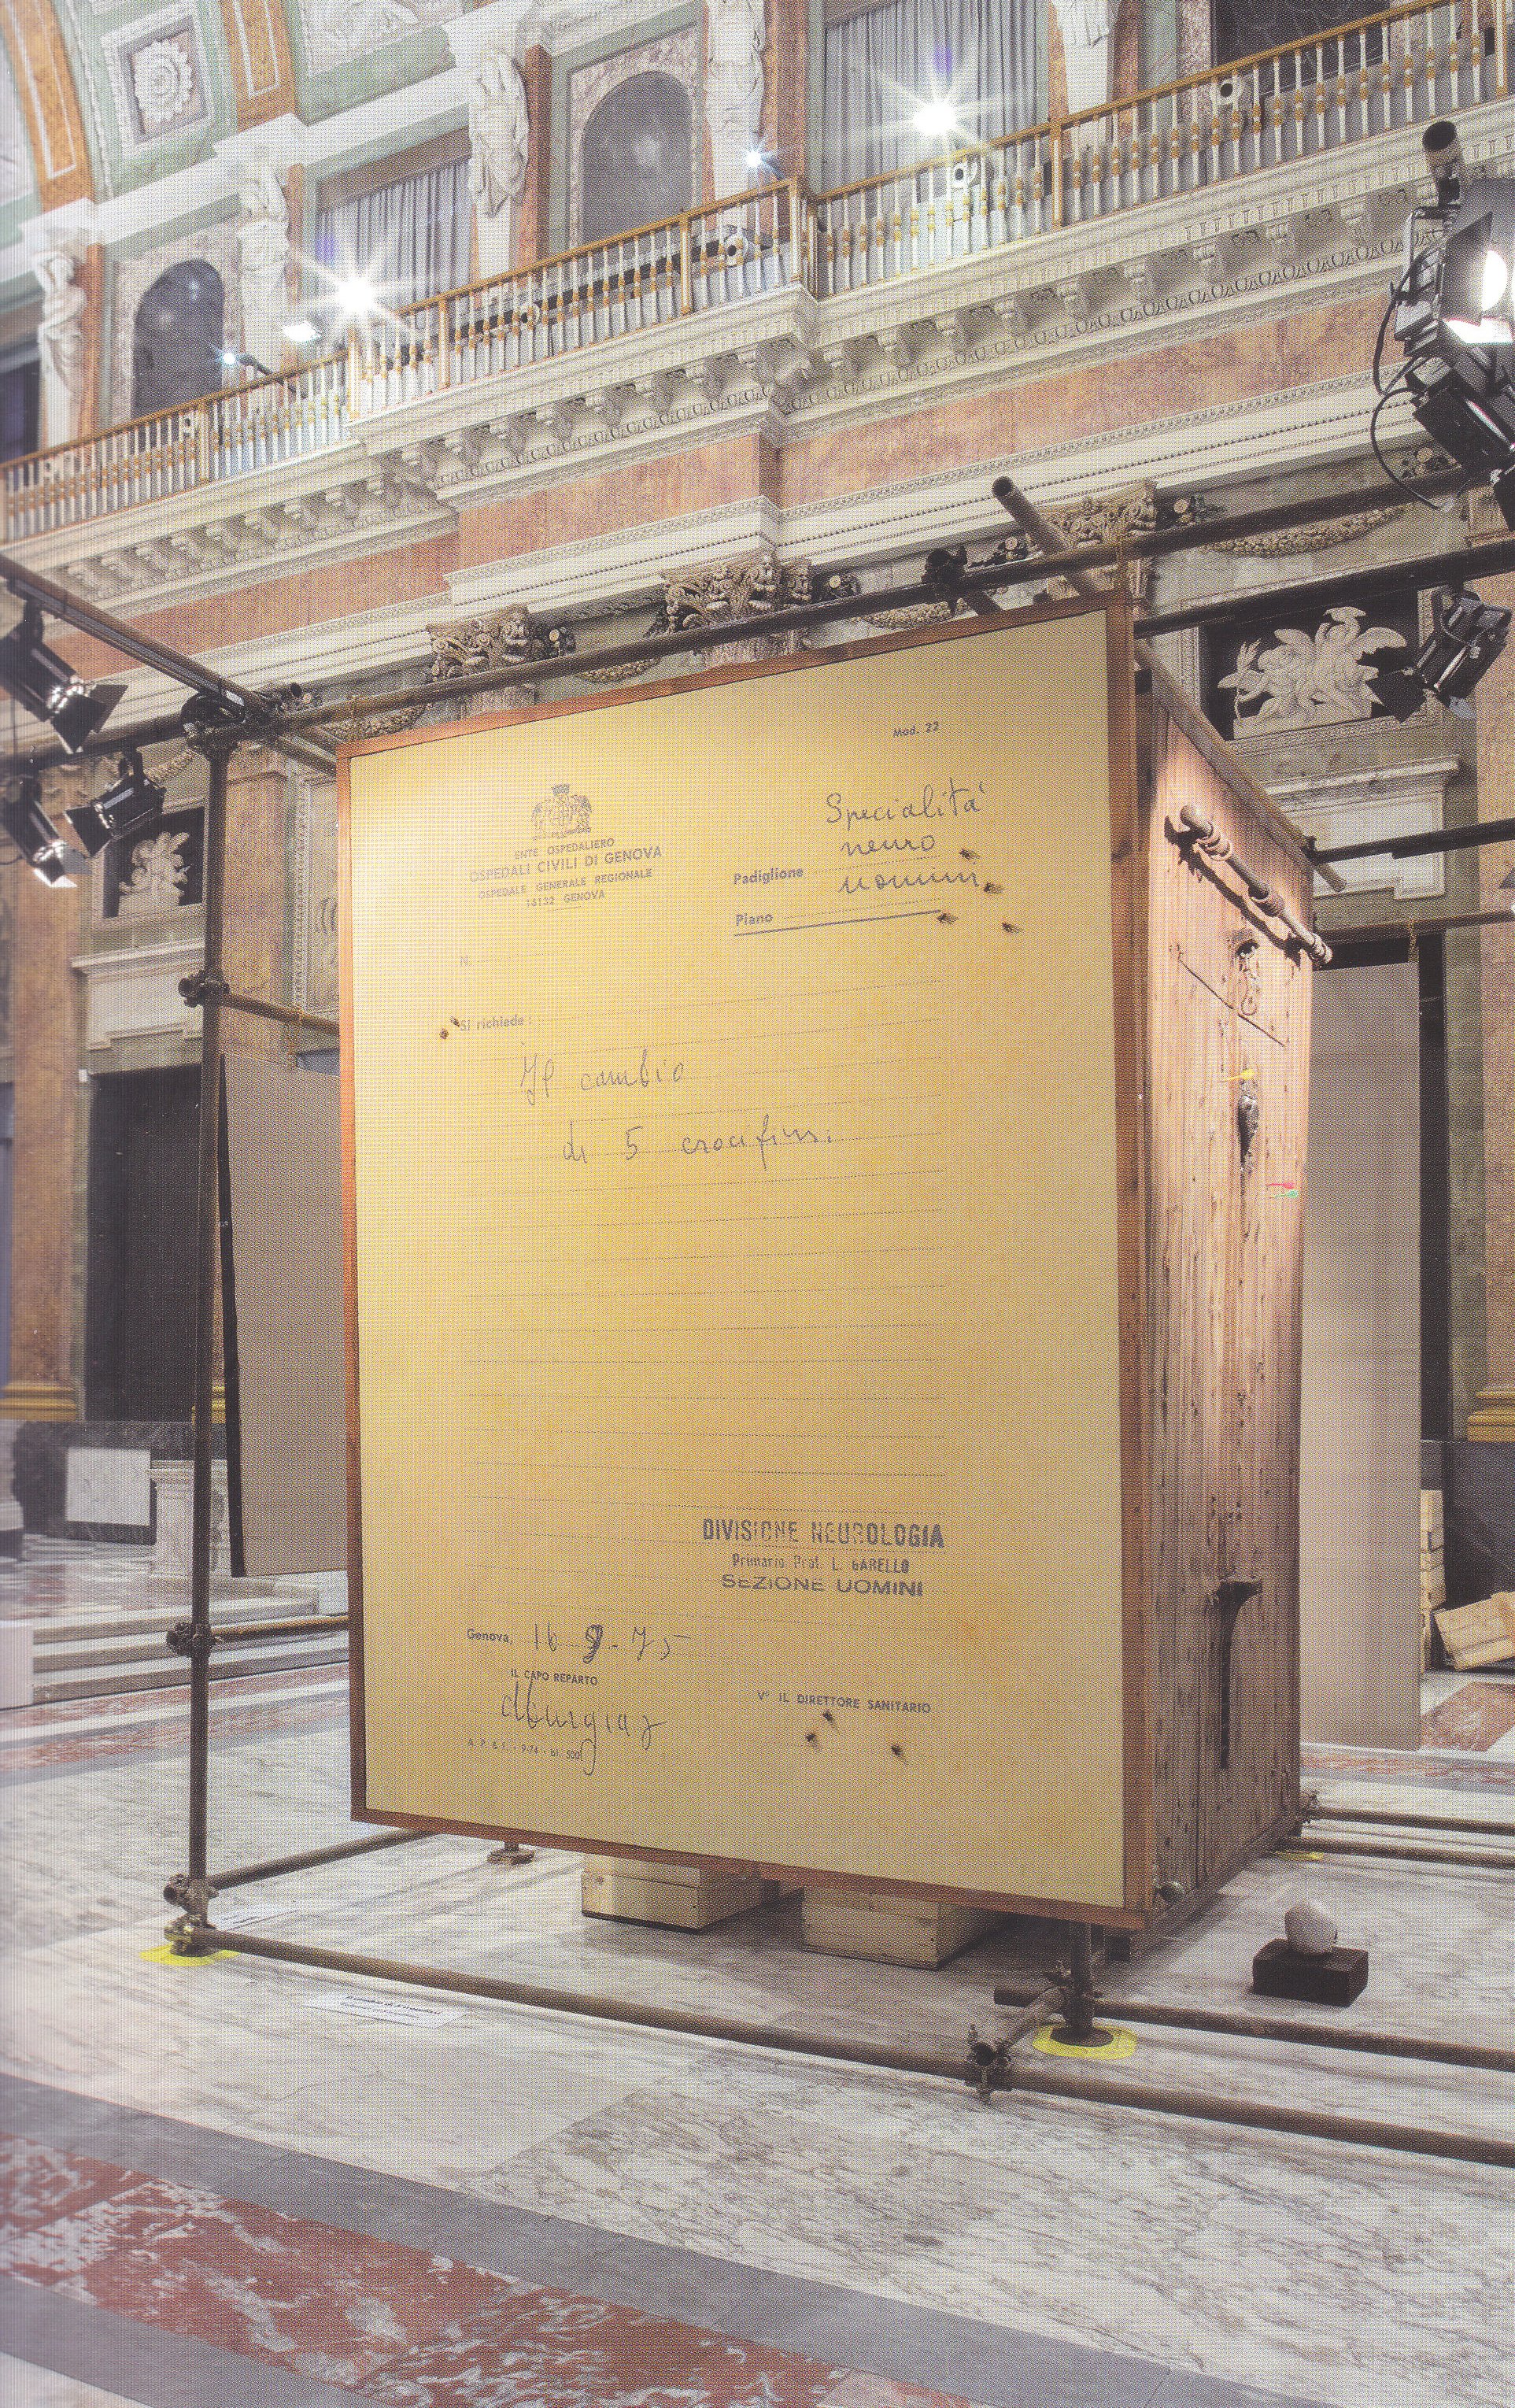 Mod. 22
ENTE OSPEDALIERO
OSPEDALI CIVILI DI GENOVA
OSPEDALE GENERALE REGIONALE
16132 GENOVA
Specialità
neuro
Padiglione uomini
Piano
N.
Si richiede :
Il cambio
di 5 crocefissi
DIVISIONE NEUROLOGIA
Primario Prof. L. GARELLO
SEZIONE UOMINI
Genova, 16 9-75
IL CAPO REPARTO
V° IL DIRETTORE SANITARIO
A. P. & F. - 9-74 - bl. 500